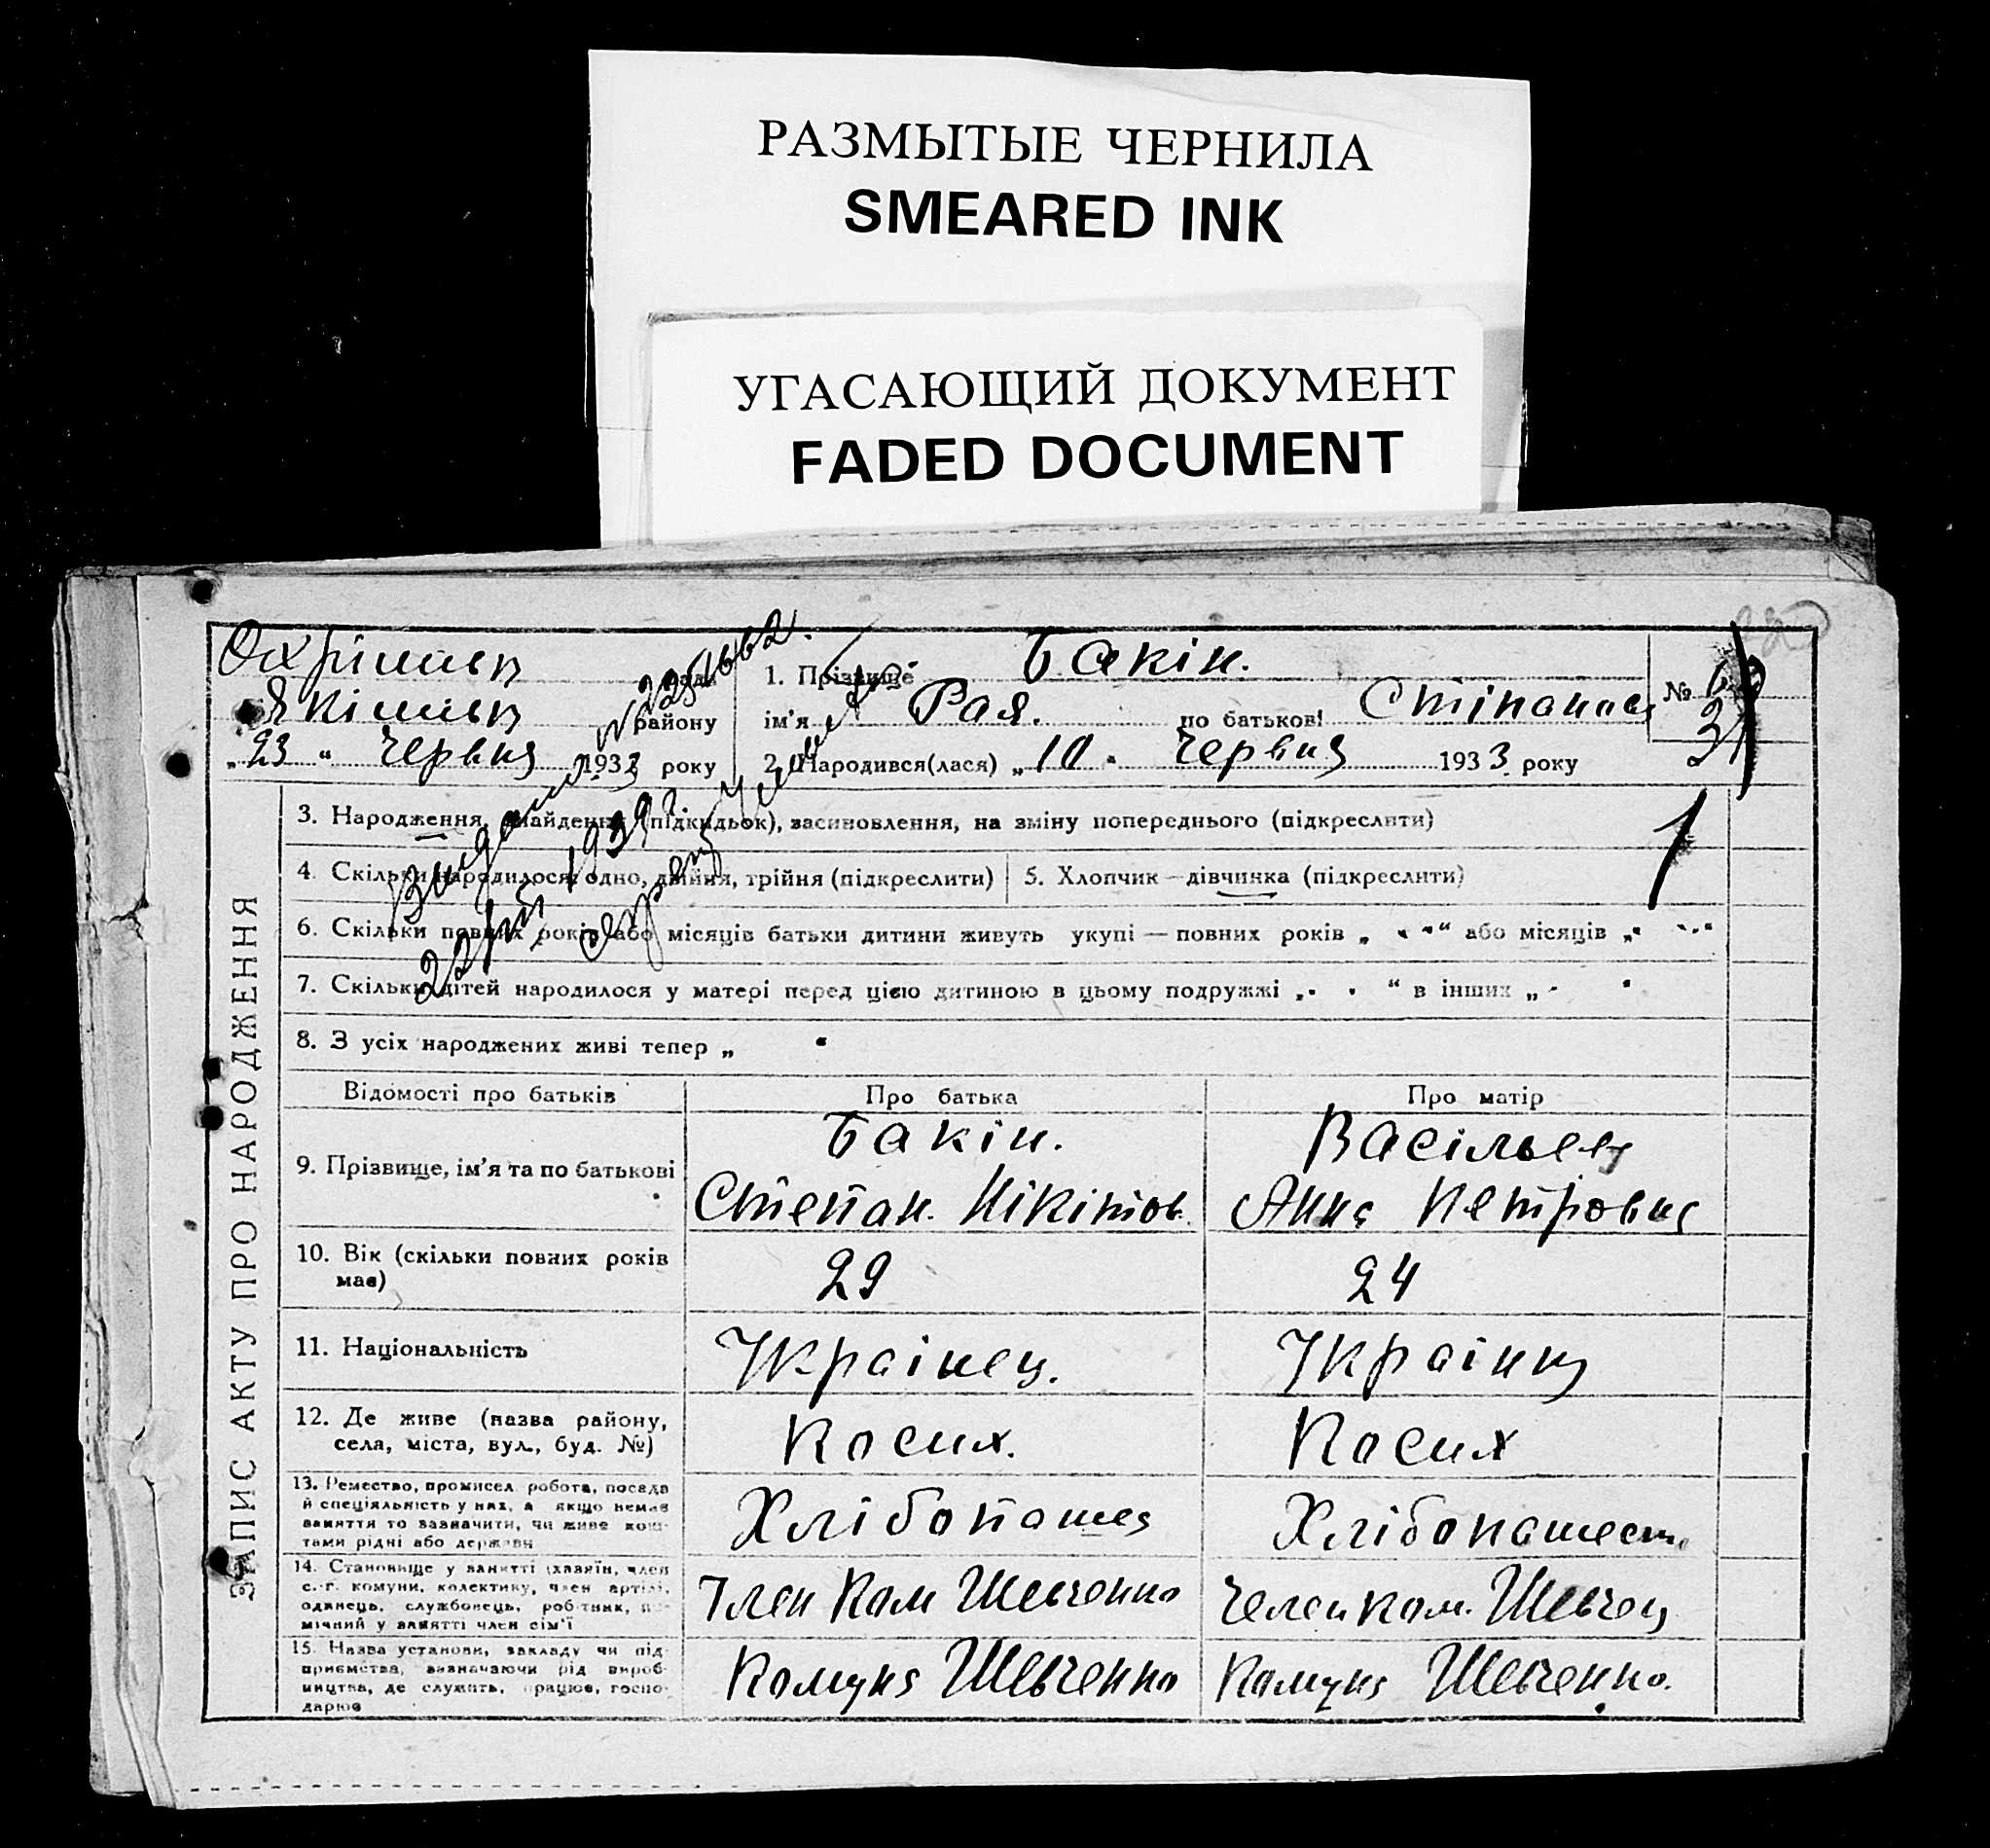 РАЗМЫТЫЕ ЧЕРНИЛА
SMEARED INK
УГАСАЮЩИЙ ДОКУМЕНТ
FADED DOCUMENT
району
"23" Червня 1933 року
1. Прізвище Бакін.
ім'я Рая. по батькові
№
31
2. Народився(лася) "10" Червня 1933 року
ЗАПИС АКТУ ПРО НАРОДЖЕННЯ
1
3. Народження, знайдення (підкидьок), засиновлення, на зміну попереднього (підкреслити)
4. Скільки народилося: одно, двійня, трійня (підкреслити)
5. Хлопчик—дівчинка (підкреслити)
6. Скільки повних років або місяців батьки дитини живуть укупі — повних років „ “ або місяців „ “
7. Скільки дітей народилося у матері перед цією дитиною в цьому подружжі „ “ в інших „ “
8. З усіх народжених живі тепер „ “
Відомості про батьків
Про батька
Про матір
9. Прізвище, ім'я та по батькові
Бакін.
Степан. Нікітов.
Васільев
Анна Петровна
10. Вік (скільки повних років
має)
29
24
11. Національність
Українец.
Українка
12. Де живе (назва району,
села, міста, вул., буд. №)
Косих.
Косих
13. Ремество, промисел робота, посада
й спеціяльність у них, а якщо немає
заняття то зазначити, чи живе кош-
тами рідні або держави
Хлібопашец
14. Становище у занятті (хазяїн, член
с.-г. комуни, колективу, член артілі,
одинець, службовець, робітник, по-
мічний у занятті член сім'ї
Член Ком Шевченко
Челен ком.
15. Назва установи, закладу чи під-
приємства, зазначаючи рід вироб-
ництва, де служить, працює, госпо-
дарює
Комуна Шевченко
Комуна Шевченко.